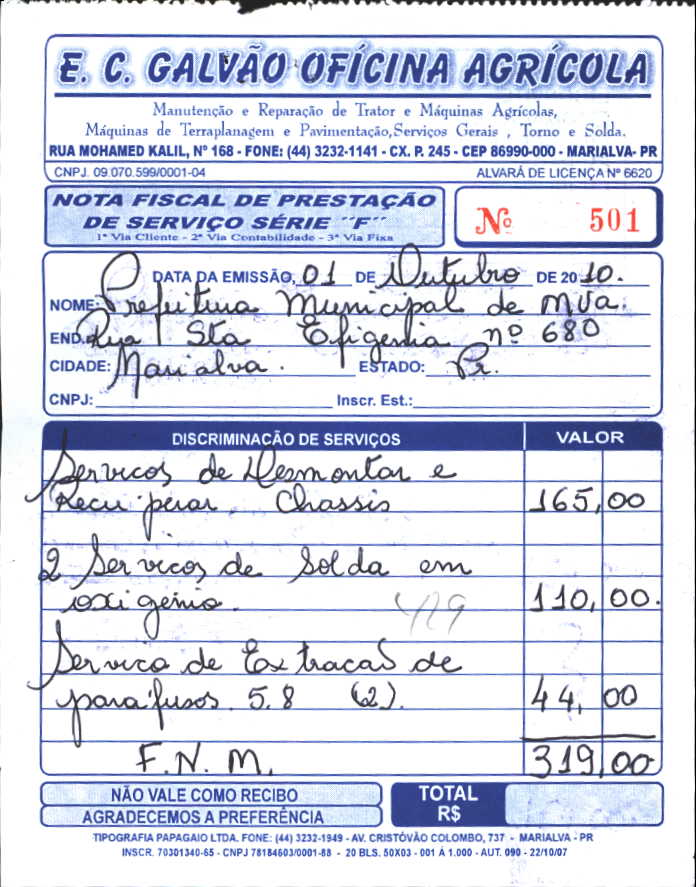 E. C. GALVÃO OFÍCINA AGRÍCOLA
Manutenção e Reparação de Trator e Máquinas Agrícolas,
Máquinas de Terraplanagem e Pavimentação,Serviços Gerais , Torno e Solda.
RUA MOHAMED KALIL, Nº 168 - FONE: (44) 3232-1141 - CX. P. 245 - CEP 86990-000 - MARIALVA- PR
CNPJ. 09.070.599/0001-04 ALVARÁ DE LICENÇA Nº 6620
NOTA FISCAL DE PRESTAÇÃO
DE SERVIÇO SÉRIE ´´F´´
1ª Via Cliente - 2ª Via Contabilidade - 3ª Via Fixa
Nº 501
DATA DA EMISSÃO, 01 DE Outubro DE 20 10.
NOME: Prefeitura Municipal de MVa.
END. Rua Sta Efigenia nº 680
CIDADE: Marialva. ESTADO: Pr.
CNPJ: Inscr. Est.:
DISCRIMINAÇÃO DE SERVIÇOS VALOR
Servicos de Desmontar e
Recuperar Chassis 165,00
2 Servicos de Solda em
oxigenio. 110,00.
429
Servico de Extracao de
parafusos 5.8 (2). 44,00
F.N.M. 319,00
NÃO VALE COMO RECIBO
AGRADECEMOS A PREFERÊNCIA
TOTAL
R$
TIPOGRAFIA PAPAGAIO LTDA. FONE: (44) 3232-1949 - AV. CRISTÓVÃO COLOMBO, 737 - MARIALVA - PR
INSCR. 70301340-65 - CNPJ 78184603/0001-88 - 20 BLS. 50X03 - 001 Á 1.000 - AUT. 090 - 22/10/07